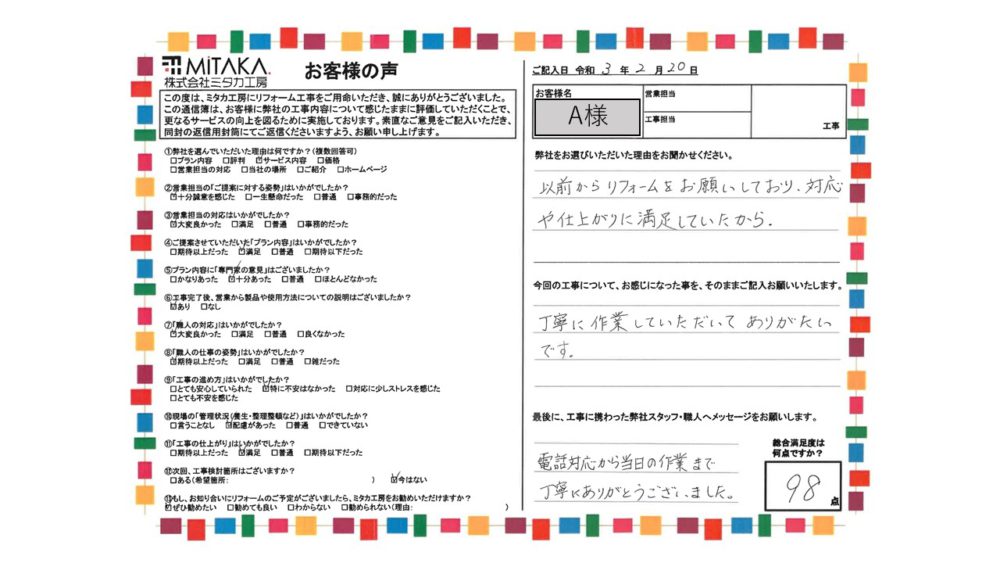 MiTAKA.
株式会社ミタカ工房
お客様の声
この度は、ミタカ工房にリフォーム工事をご用命いただき、誠にありがとうございました。
この通信簿は、お客様に弊社の工事内容について感じたままに評価していただくことで、
更なるサービスの向上を図るために実施しております。素直なご意見をご記入いただき、
同封の返信用封筒にてご返信くださいますよう、お願い申し上げます。
①弊社を選んでいただいた理由は何ですか?(複数回答可)
□プラン内容 □評判 ☑サービス内容 □価格
□営業担当の対応 □当社の場所 □ご紹介 □ホームページ
②営業担当の「ご提案に対する姿勢」はいかがでしたか?
☑十分誠意を感じた □一生懸命だった □普通 □事務的だった
③営業担当の対応はいかがでしたか?
☑大変良かった □満足 □普通 □事務的だった
④ご提案させていただいた「プラン内容」はいかがでしたか?
□期待以上だった ☑満足 □普通 □期待以下だった
⑤プラン内容に「専門家の意見」はございましたか?
□かなりあった ☑十分あった □普通 □ほとんどなかった
⑥工事完了後、営業から製品や使用方法についての説明はございましたか?
☑あり □なし
⑦「職人の対応」はいかがでしたか?
☑大変良かった □満足 □普通 □良くなかった
⑧「職人の仕事の姿勢」はいかがでしたか?
☑期待以上だった □満足 □普通 □雑だった
⑨「工事の進め方」はいかがでしたか?
□とても安心していられた ☑特に不安はなかった □対応に少しストレスを感じた
□とても不安を感じた
⑩現場の「管理状況(養生・整理整頓など)」はいかがでしたか?
□言うことなし ☑配慮があった □普通 □できていない
⑪「工事の仕上がり」はいかがでしたか?
□期待以上だった ☑満足 □普通 □期待以下だった
⑫次回、工事検討箇所はございますか?
□ある(希望箇所: ) ☑今はない
⑬もし、お知り合いにリフォームのご予定がございましたら、ミタカ工房をお勧めいただけますか?
☑ぜひ勧めたい □勧めても良い □わからない □勧められない(理由: )
ご記入日 令和 3 年 2 月 20 日
お客様名
A様
営業担当
工事担当
工事
弊社をお選びいただいた理由をお聞かせください。
以前からリフォームをお願いしており、対応
や仕上がりに満足していたから.
今回の工事について、お感じになった事を、そのままご記入お願いいたします。
丁寧に作業していただいてありがたい
です.
最後に、工事に携わった弊社スタッフ・職人へメッセージをお願いします。
電話対応から当日の作業まで
丁寧にありがとうございました。
総合満足度は
何点ですか?
98 点